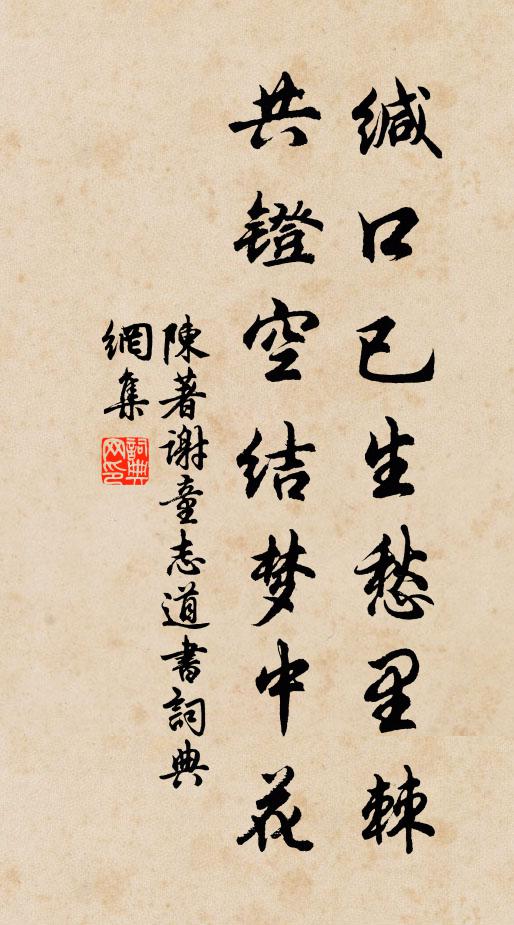 缄口已生愁里棘
共镫空结梦中花
陳著谢童志道書詞典
網集
詞典
网印